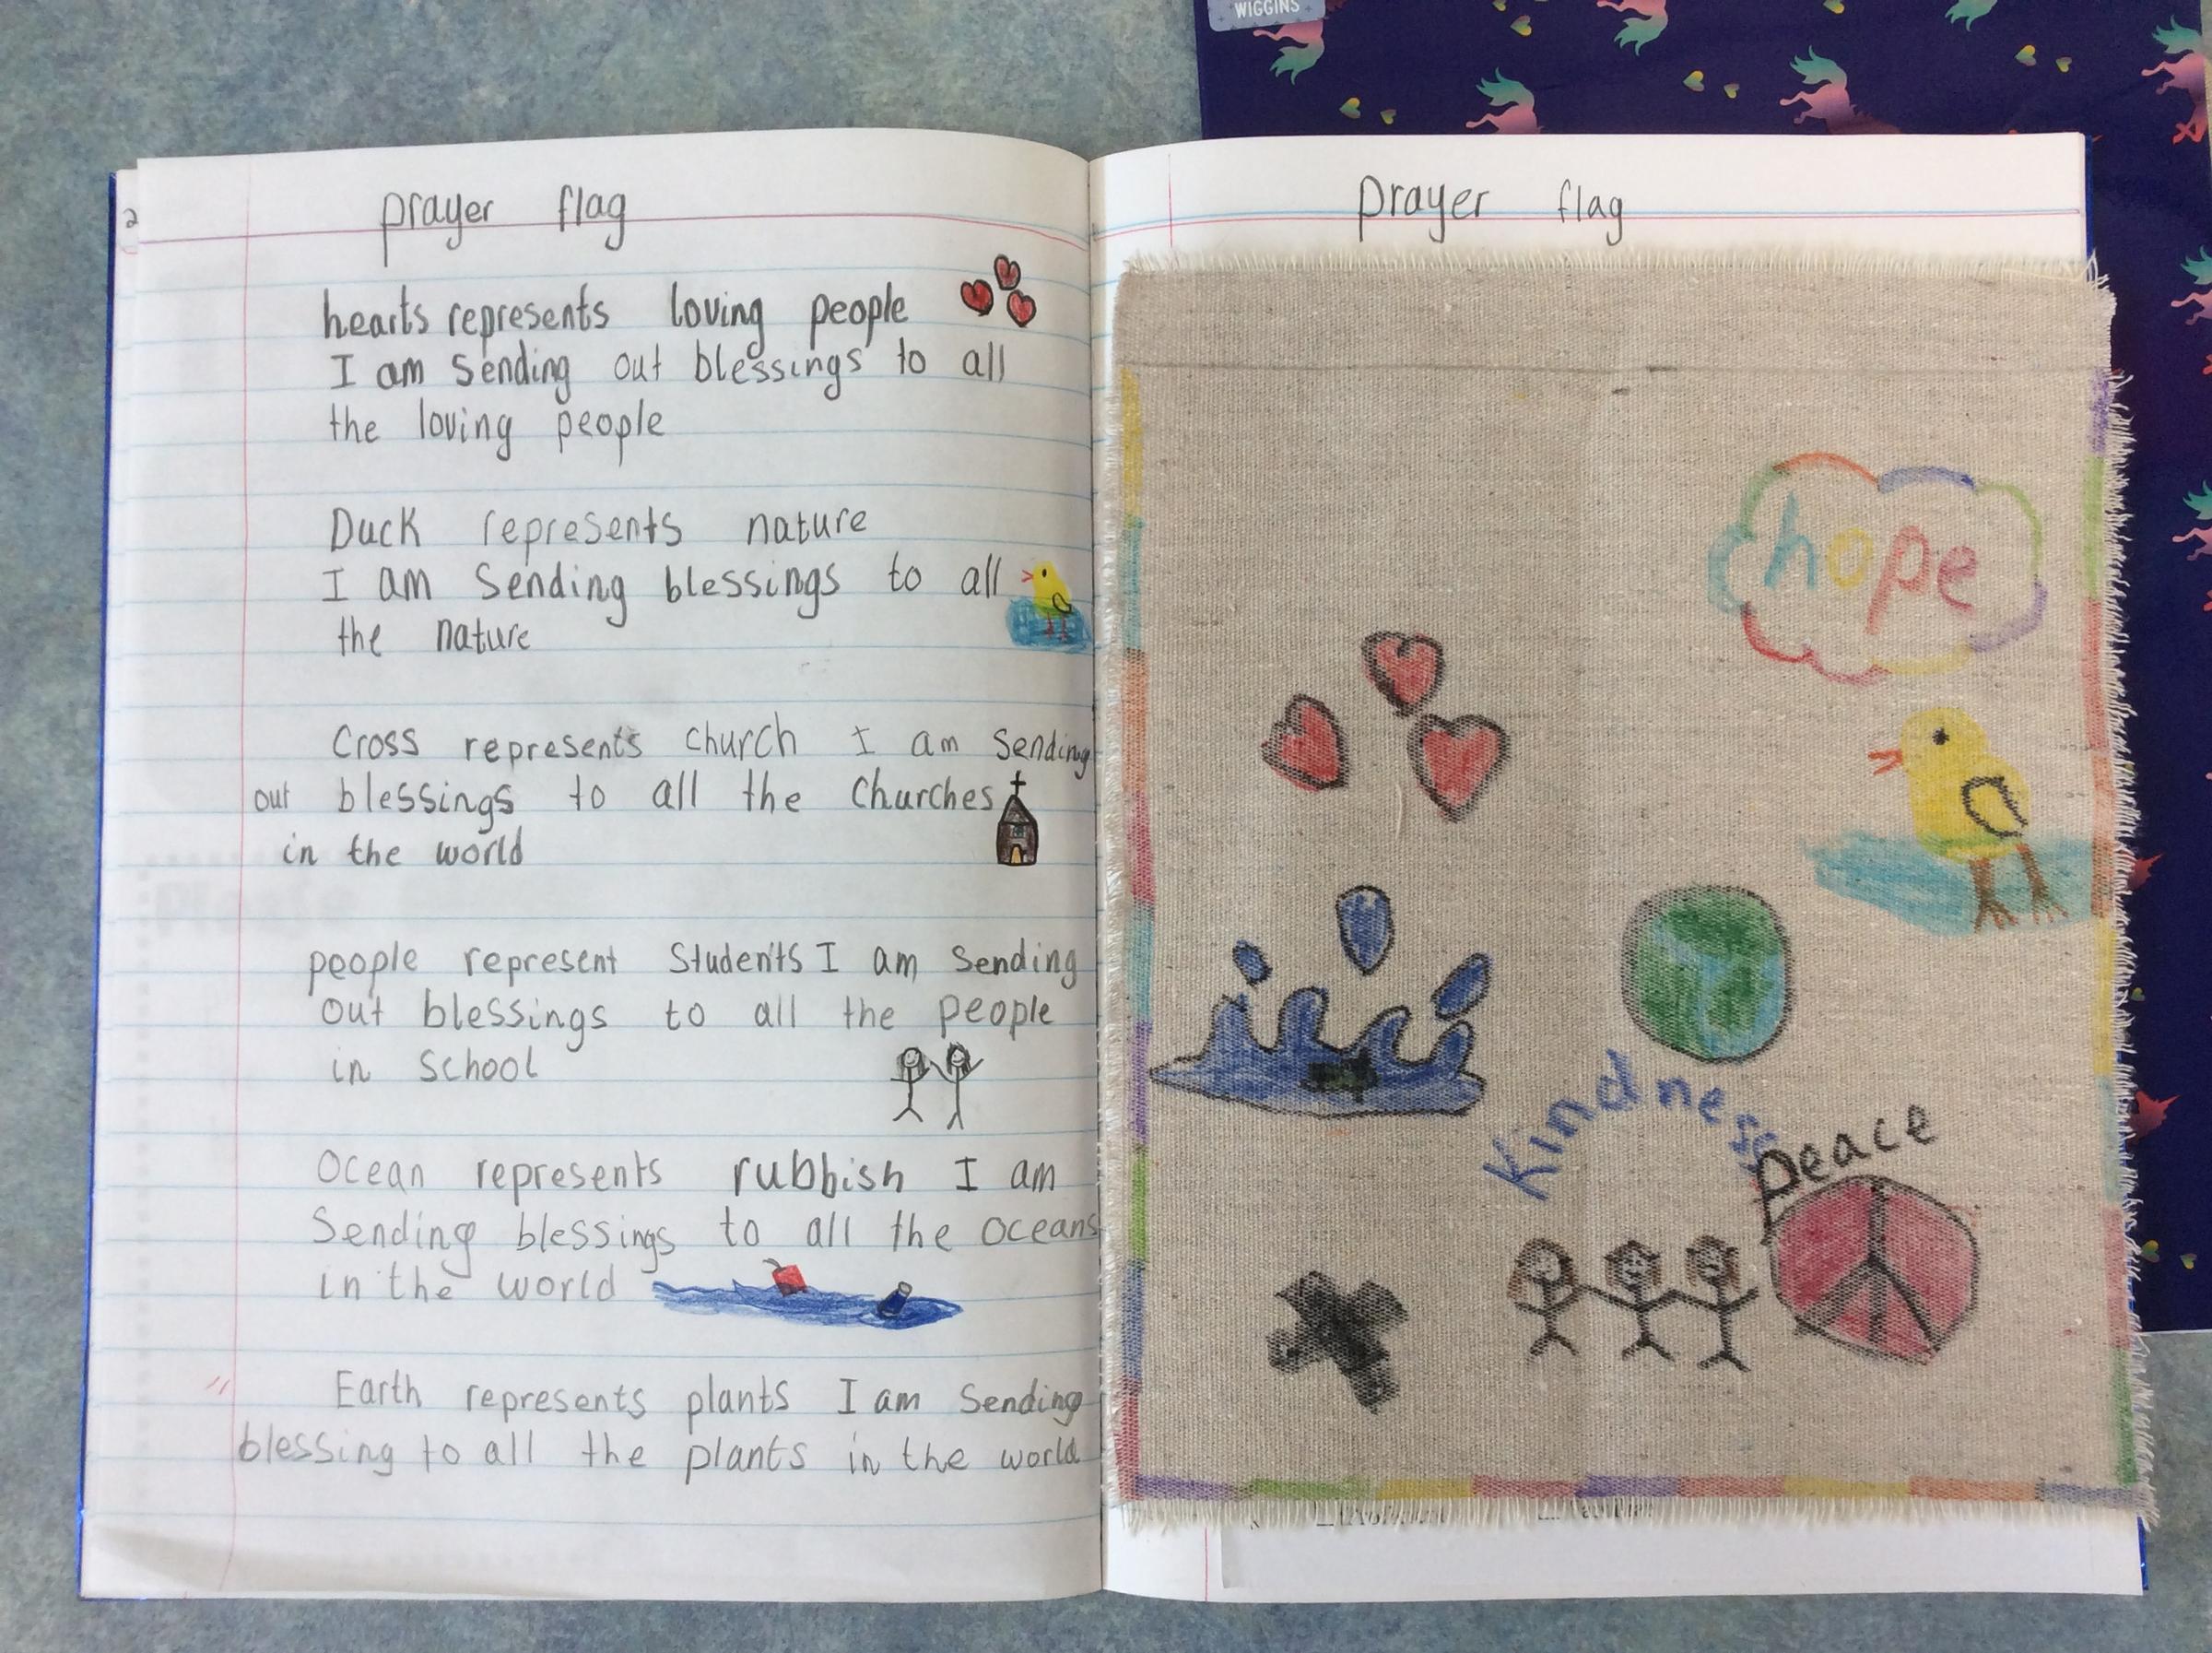 WIGGINS
2
prayer flag
hearts represents loving people
I am sending out blessings to all
the loving people
Duck represents nature
I am sending blessings to all
the nature
Cross represents church I am sending
out blessings to all the churches
in the world
people represent students I am sending
out blessings to all the people
in school
Ocean represents rubbish I am
sending blessings to all the oceans
in the world
Earth represents plants I am sending
blessing to all the plants in the world
prayer flag
hope
kindness
peace